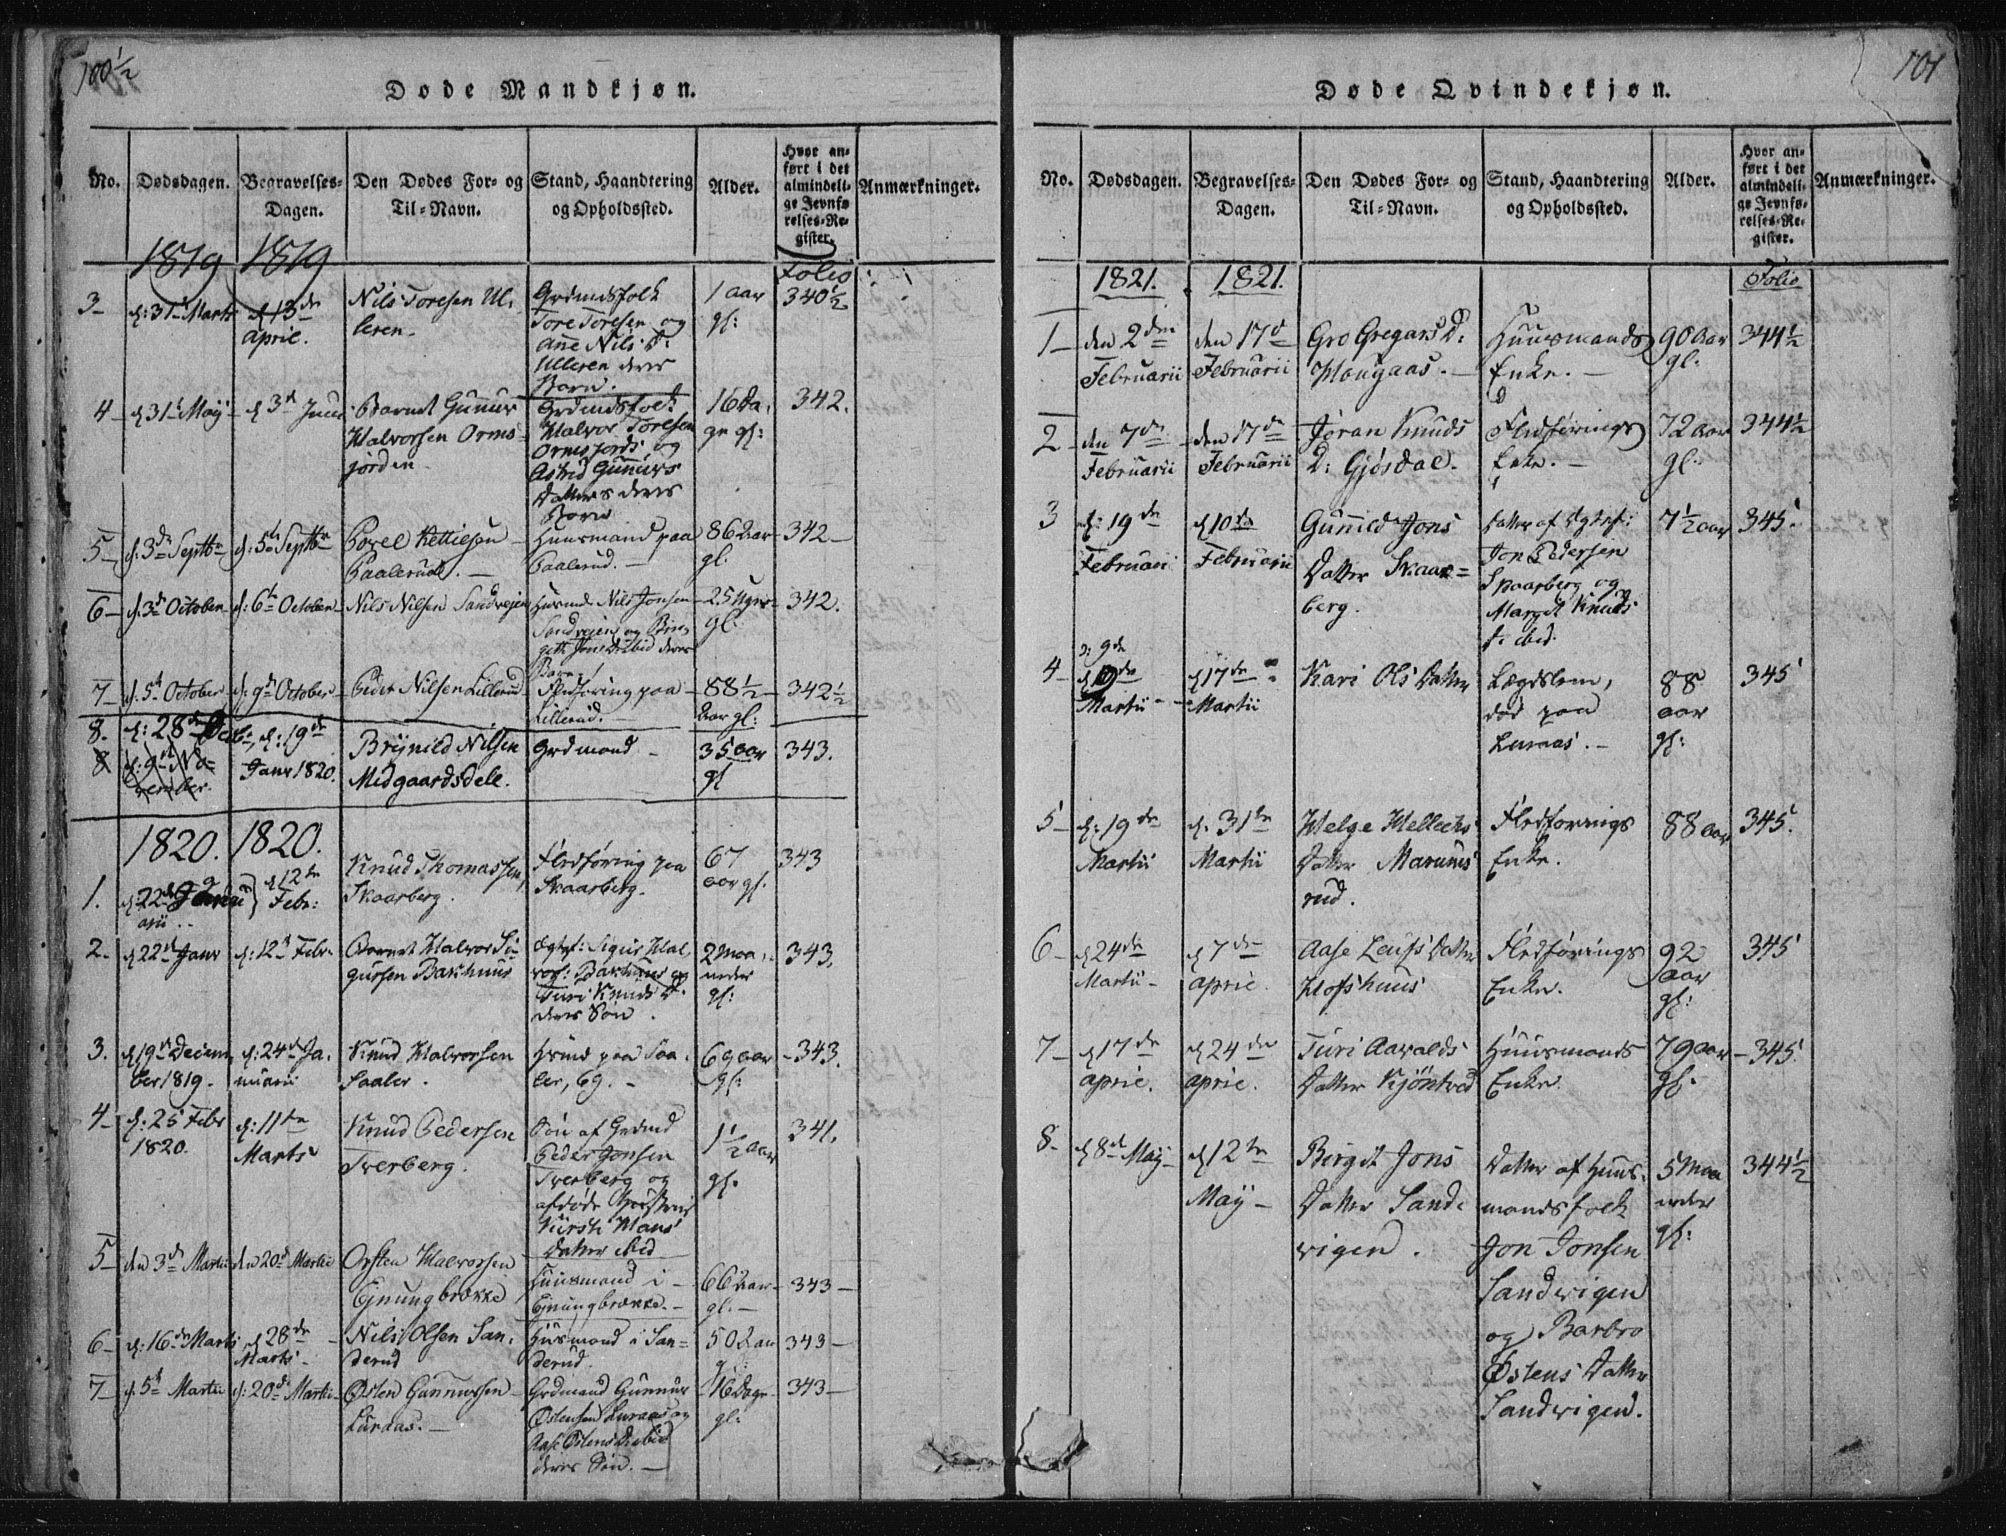 100 1/2
Døde Mandkjøn.
No. Dødsdagen. Begravelses-Dagen. Den Dødes For- og Til-Navn. Stand, Haandtering og Opholdssted. Alder. Hvor anført i det almindelige Jevnførelses-Register. Anmærkninger.
1819 1819 Folio
3 d: 31 Marts d 13de April. Nils Toresen Ulleren Grdmdsfolk Tore Toresen og Anne Nils D. Ulleren deres Barn. 1 aar gl: 340 1/2
4 d 31 May d 3d Juni Barnet Gunur Halvorsen Ormsjorden Grdmdsfolk Halvor Toresen Ormsjords og Astrid Gunurs Datters deres Barn 16 Dage gl: 342.
5 d. 3de Septbr d. 5te Septbr Povel Kettilsøn Paalerud. Huusmand paa Paalerud. 86 Aar gl. 342
6 d. 3de October d. 6te October Nils Nilsen Sandvejen Husmd Nils Jonsen Sandvejen og Birgitte Jons D. ibid deres Barn 25 Uger gl. 342.
7 d. 5te October d. 9de October Peder Nilsen Lillerud Fledføring paa Lillerud. 88 1/2 Aar gl: 342 1/2
8. d. 28de d. 19de Janr 1820. Brynild Nilsen Midgaardsdele. Grdmand 35 aar gl 343.
8 d. 9de November
1820. 1820.
1. d. 22de Januarii d 12te Febr: Knud Thomassen Skaarberg. Fledføring paa Skaarberg. 67 aar gl. 343
2. d 22de Janr d. 12te Febr. Barnet Halvor Sigursen Barkhuus Sigur Halvors: Barkhuus og Turi Knuds D. deres Søn. 2 Maaneder gl: 343.
3. d 19de December 1819. d. 24de Januarii Knud Halvorsen Saaler. Hsmd paa Saaler, 69. 69 aar gl: 343.
4 d. 25 Febr 1820. d. 11te Marts Knud Pedersen Tverberg. Søn af Grdmd Peder Jonsen Tverberg og afdøde Kirsti Hans Datter ibid 1 1/2 aar gl. 341.
5 den 3de Martii den 20de Martii Østen Halvorsen Huusmand i 66 Aar gl. 343
6 d. 16de Marts d 28de Marts Nils Olsen Sanderud Husmand i Sanderud. 50 Aar 343
7 d. 5te Martii d. 20de Martii Østen Gunnursen Luraas. Grdmand Gunnur Østensen Luraas og Aase Østens D. ibid deres Søn. 16 Dage gl: 343
101
Døde Qvindekjøn.
No. Dødsdagen. Begravelses-Dagen. Den Dødes For- og Til-Navn. Stand, Haandtering og Opholdssted. Alder. Hvor anført i det almindelige Jevnførelses-Register. Anmærkninger.
1821. 1821. Folio
1 den 2den Februarii den 17de Februarii Gro Gregars D: Hougaas. Huusmands Enke. 90 Aar gl: 344 1/2
2 den 7de Februarii den 17de Februarii Jøran Knuds D: Gjøsdal. Fledførings Enke. 72 Aar gl: 344 1/2
3 d: 19de Februarii d 10de Februarii Gunild Jons Datter Skaarberg. Datter af Jon Pedersen Skaarberg og Margit Knuds D. ibid. 7 1/2 aar 345.
4 9de Martii d 17de Martii Kari Ols Datter Lægdslem, død paa Luraas. 88 aar gl: 345
5 d. 19de Martii d. 31te Martii Helge Hellecks Datter Marumsrud. Fledførings Enke. 88 aar 345.
6 d 24de Martii d 7de April. Aase Leufs Datter Hofshuus Fledførings Enke. 92 aar gl: 345
7 d 17de April. d 24de April. Turi Aavalds Datter Kjøntved Huusmands Enke. 79 aar gl. 345.
8. d 8de May d 12te May Birgit Jons Datter Sandvigen. Datter af Huusmandsfolk Jon Jonsen Sandvigen og Barbro Østens Datter Sandvigen. 5 Maaneder gl: 344 1/2